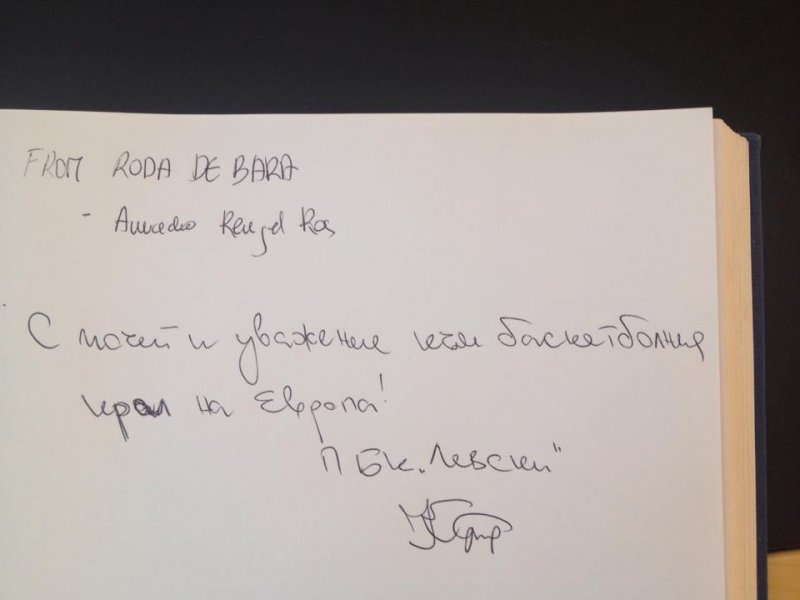 FROM RODA DE BARA
- Amadeo Rengel Ros
С почит и уважение към баскетболния
крал на Европа!
ПБК „Левски"